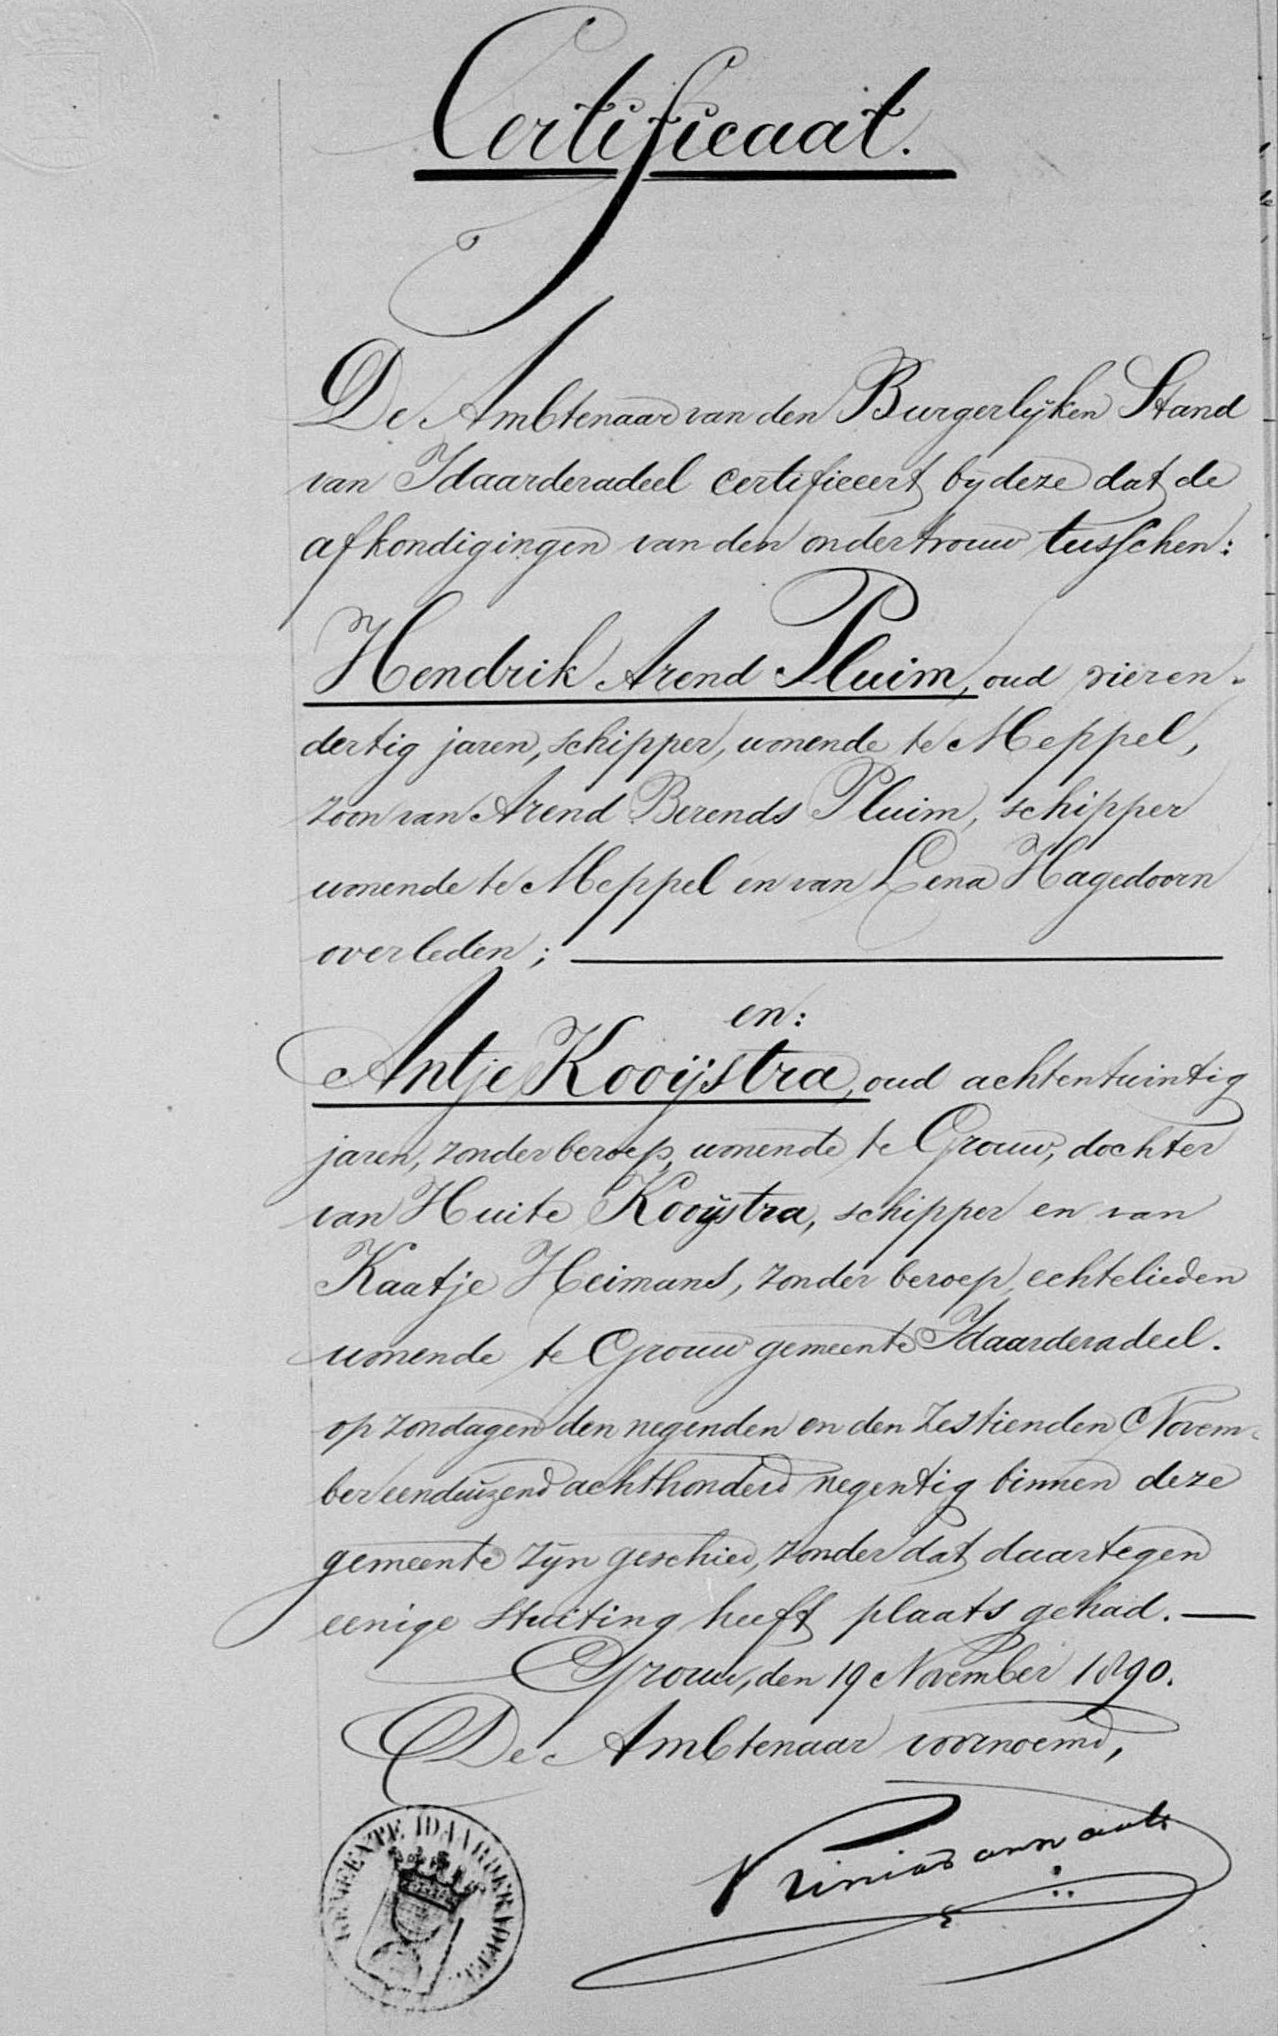 Certificaat.
De Ambtenaar van den Burgerlijken Stand
van Idaarderadeel certificeert bij deze dat de
afkondigingen van den ondertrouw tusschen:
Hendrik Arend Pluim, oud vieren-
dertig jaren, schipper, wonende te Meppel,
zoon van Arend Berends Pluim, schipper
wonende te Meppel en van Lena Hagedoorn
overleden;
en:
Antje Kooijstra, oud achtentwintig
jaren, zonder beroep, wonende te Grouw, dochter
van Huite Kooijstra, schipper en van
Kaatje Heimans, zonder beroep, echtelieden
wonende te Grouw gemeente Idaarderadeel.
op zondagen den negenden en den zestienden Novem-
ber eenduizend achthonderd negentig binnen deze
gemeente zijn geschied, zonder dat daartegen
eenige stuiting heeft plaats gehad. —
Grouw, den 19 November 1890.
De Ambtenaar voornoemd,
GEMEENTE IDAARDERADEEL